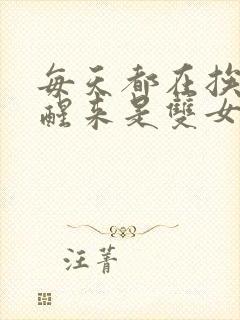 每天都在挨
醒来是雙女
汪菁